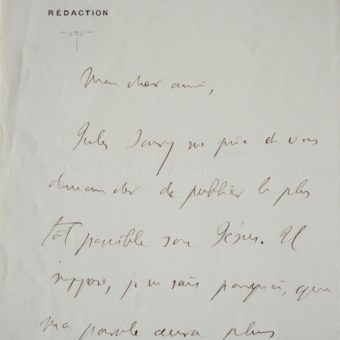 RÉDACTION
Mon cher ami,
Jules Jouy me prie de vous
demander de publier le plus
tôt possible son Jésus. Il
suppose, je ne sais pourquoi, que
ma parole aura plus